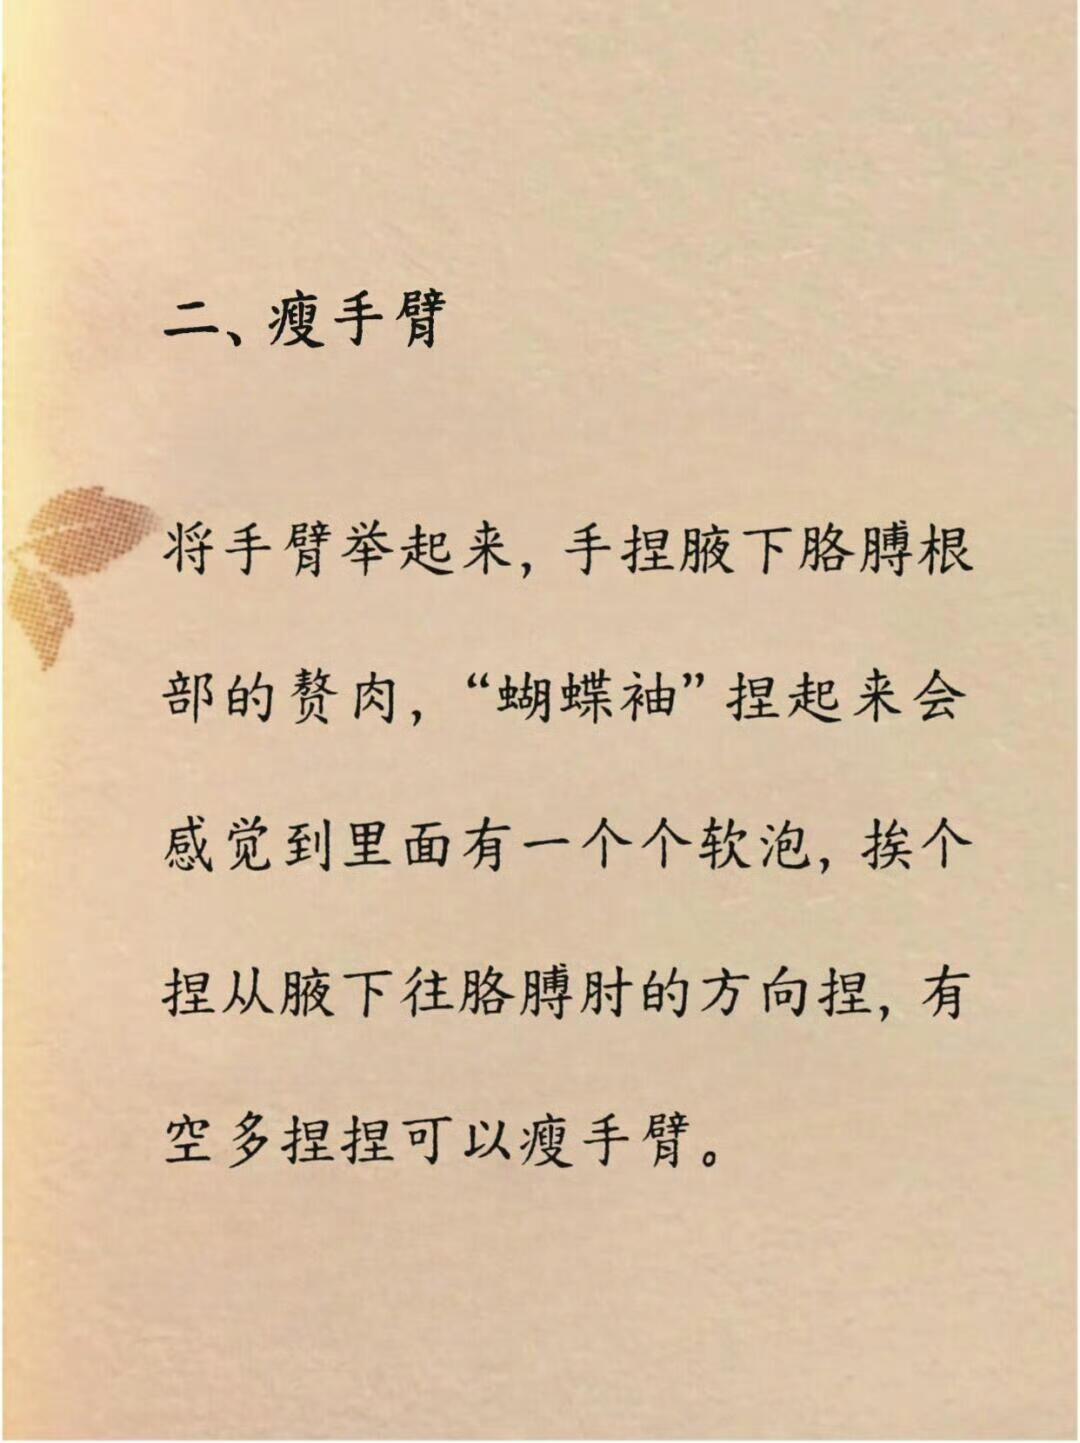 二、瘦手臂
将手臂举起来，手捏腋下胳膊根
部的赘肉，“蝴蝶袖”捏起来会
感觉到里面有一个个软泡，挨个
捏从腋下往胳膊肘的方向捏，有
空多捏捏可以瘦手臂。